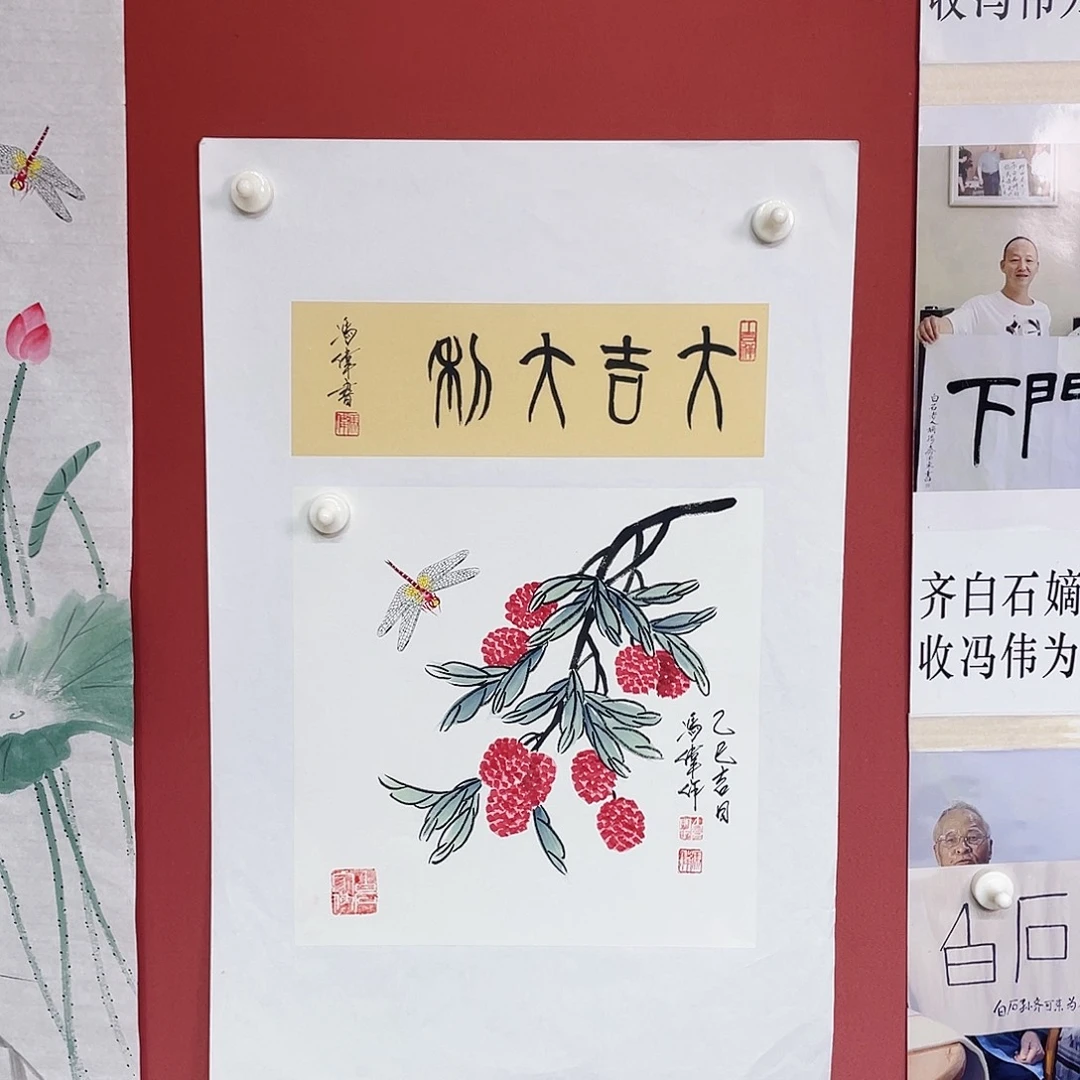 大吉大利
馮偉書
乙巳吉日
馮偉作
收冯伟为
門下
齐白石嫡
收冯伟为
白石